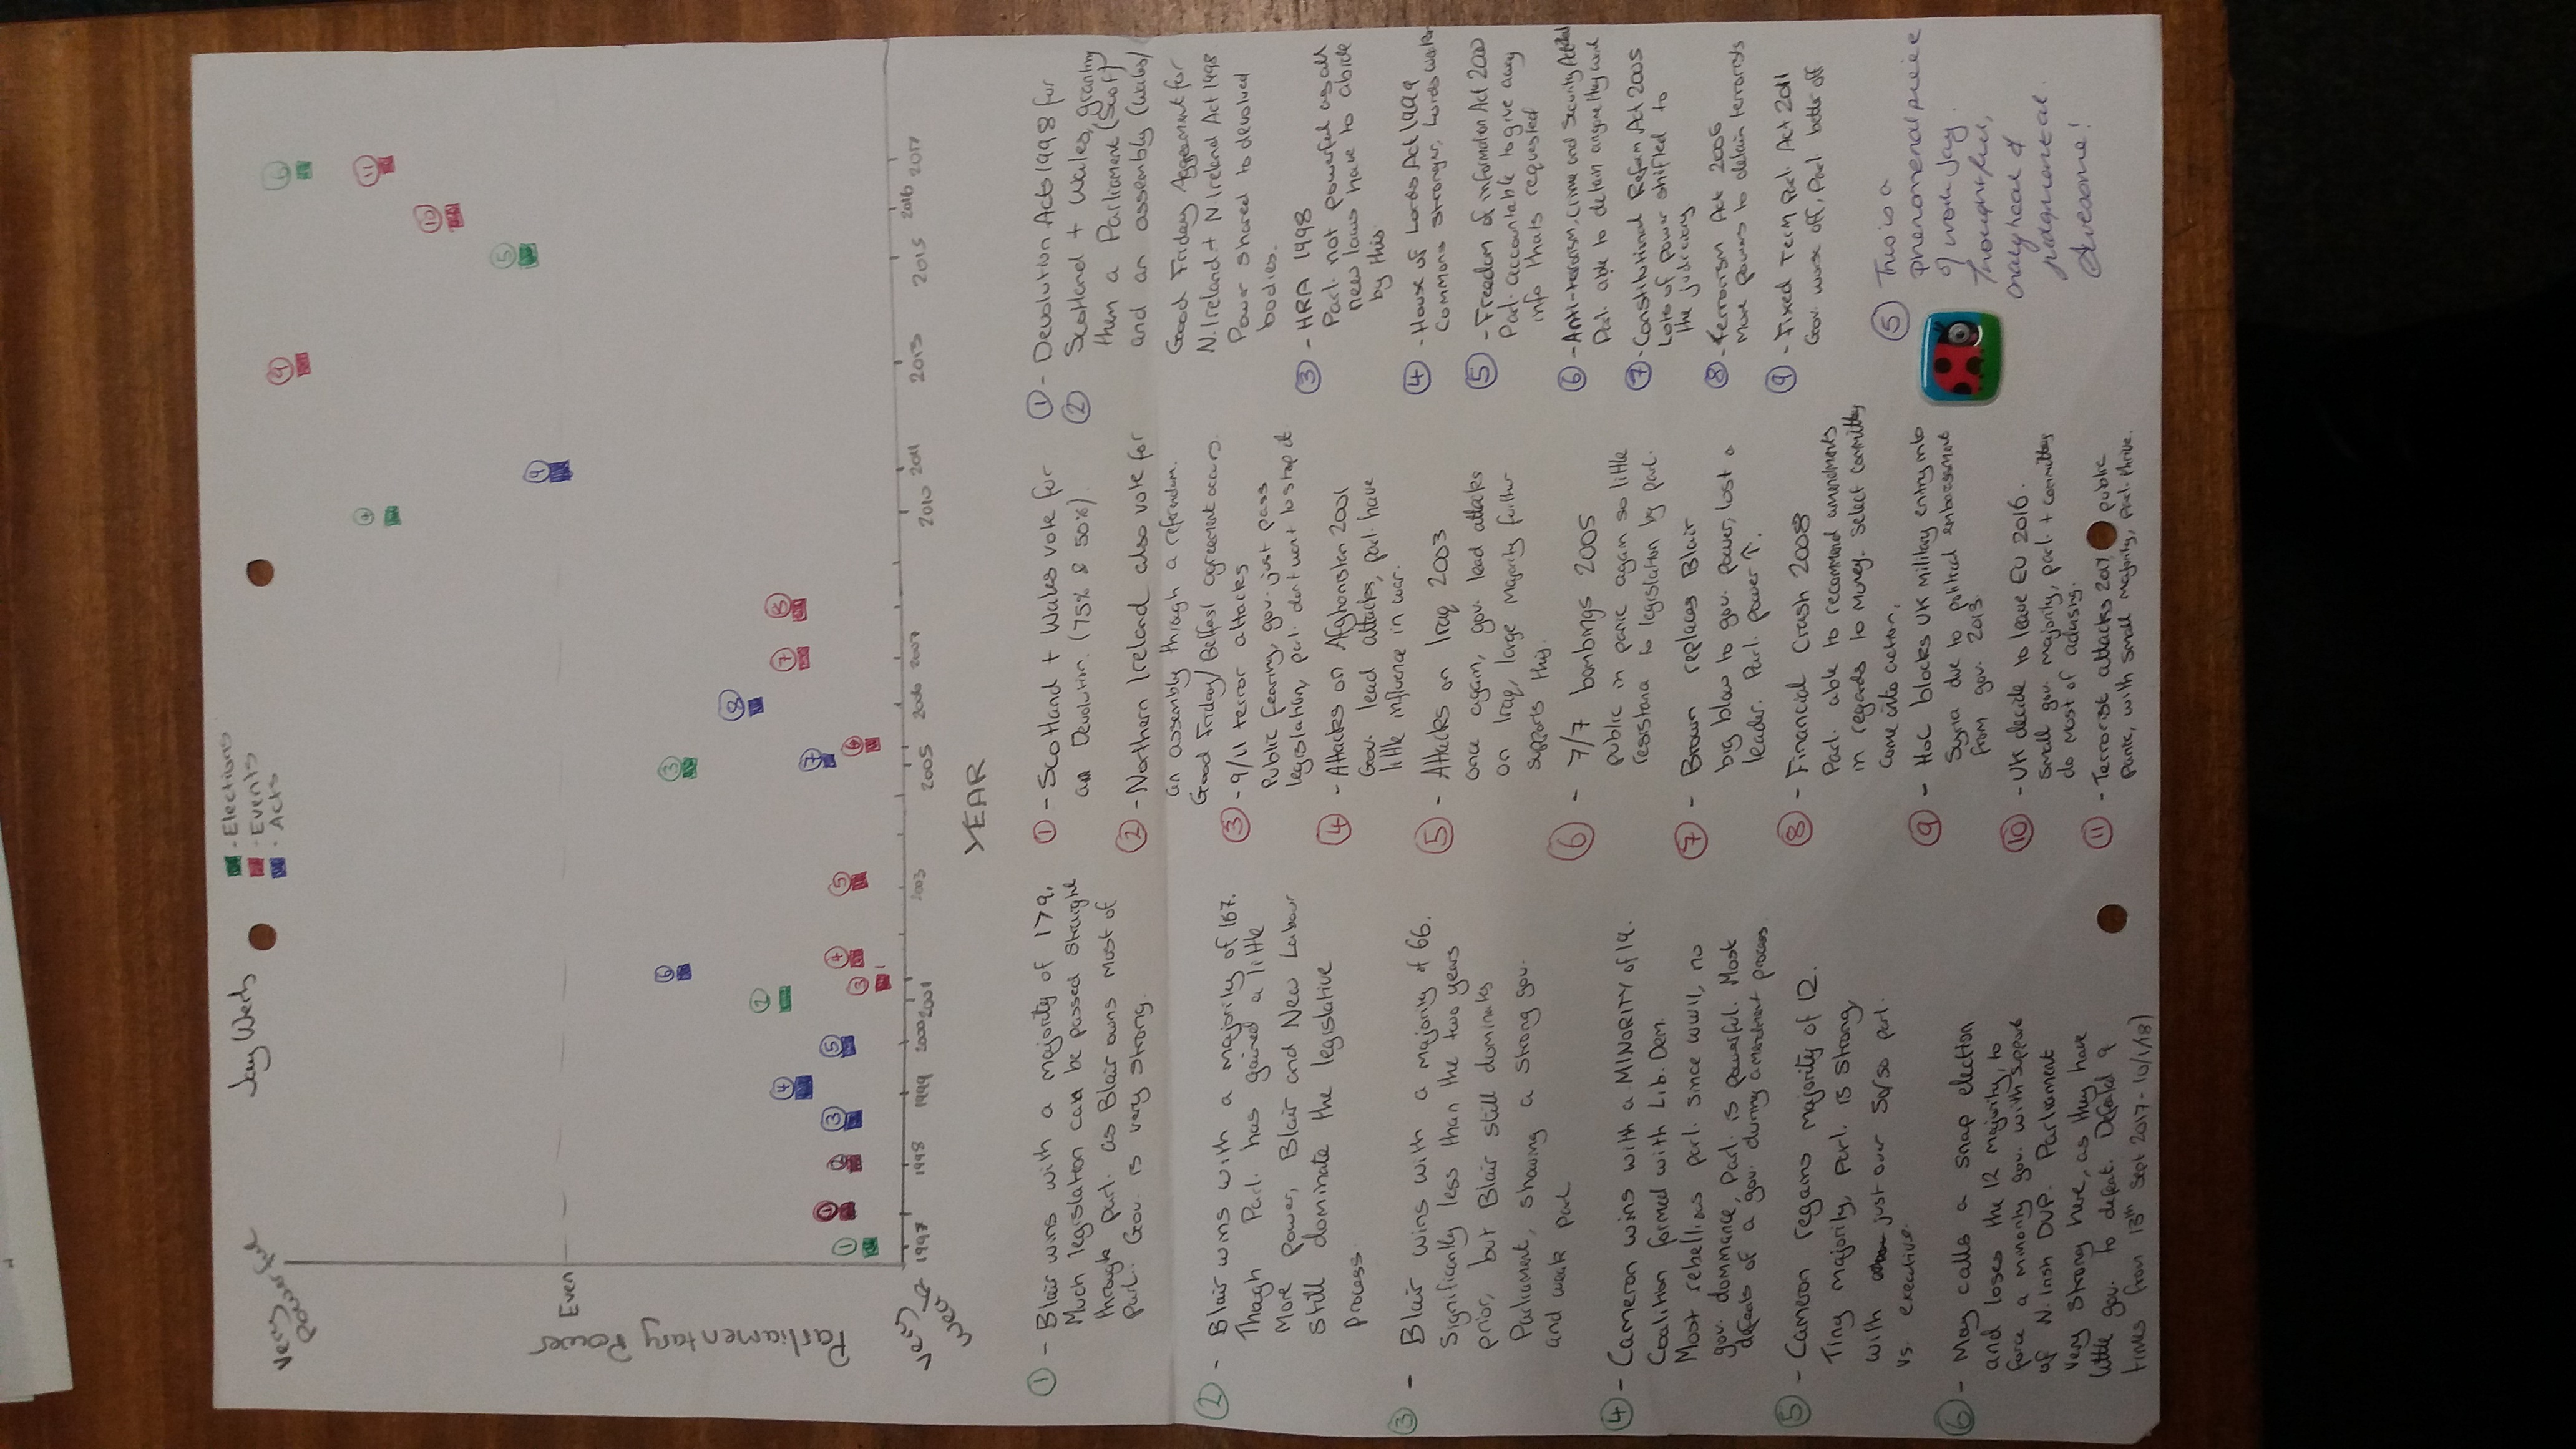 Jay Werts
- Elections
- Events
- Acts
Very
Powerful
Even
Parliamentary Power
Very
weak
① ① ② ③ ④ ⑤ ② ③ ④ ⑥ ⑤ ③ ⑦ ⑥ ⑧ ⑦ ⑧ ④ ⑨ ⑨ ⑤ ⑩ ⑪ ⑥
1997 1998 1999 2000 2001 2003 2005 2006 2007 2010 2011 2013 2015 2016 2017
YEAR
① - Blair wins with a majority of 179,
Much legislation can be passed straight
through parl. as Blair owns most of
parl. Gov. is very strong.
② - Blair wins with a majority of 167.
Though Parl. has gained a little
more power, Blair and New Labour
still dominate the legislative
process.
③ - Blair wins with a majority of 66.
Significantly less than the two years
prior, but Blair still dominates
Parliament, showing a strong gov.
and weak parl.
④ - Cameron wins with a MINORITY of 19.
Coalition formed with Lib. Dem.
Most rebellious parl. since WWII, no
gov. dominance, parl. is powerful. Most
defeats of a gov. during amendment process.
⑤ - Cameron regains majority of 12.
Tiny majority, parl. is strong
with just over 50/50 parl.
vs. executive.
⑥ - May calls a snap election
and loses the 12 majority, to
force a minority gov. with support
of N. Irish DUP. Parliament
very strong here, as they have
little gov. to defeat. Defeated 9
times from 13th Sept 2017 - 10/1/18)
① - Scotland + Wales vote for
an Devolution. (75% & 50%).
② - Northern Ireland also vote for
an assembly through a referendum.
Good Friday/Belfast agreement occurs.
③ - 9/11 terror attacks
Public fearing, gov. just pass
legislation, parl. dont want to stop it.
④ - Attacks on Afghanistan 2001
Gov. lead attacks, parl. have
little influence in war.
⑤ - Attacks on Iraq 2003
once again, gov. lead attacks
on Iraq, large majority further
supports this.
⑥ - 7/7 bombings 2005
public in panic again so little
resistance to legislation by parl.
⑦ - Brown replaces Blair
big blow to gov. power, lost a
leader. Parl. power ↑.
⑧ - Financial Crash 2008
Parl. able to recommend amendments
in regards to money. Select committees
come into action.
⑨ - HoC blocks UK military entry into
Syria due to political embarrassment
from gov. 2013.
⑩ - UK decide to leave EU 2016.
Small gov. majority, parl. + committees
do most of advising.
⑪ - Terrorist attacks 2017, public
panic, with small majority, parl. thrive.
① - Devolution Acts 1998 for
Scotland + Wales, granting
them a Parliament (Scot)
and an assembly (Wales)
② Good Friday Agreement for
N. Ireland + N. Ireland Act 1998
Power shared to devolved
bodies.
③ - HRA 1998
Parl. not powerful as all
new laws have to abide
by this
④ - House of Lords Act 1999
Commons stronger, Lords weaker
⑤ - Freedom of information Act 2000
Parl. accountable to give away
info thats requested
⑥ - Anti-terrorism, crime and Security Act
Parl. able to detain anyone they want
⑦ - Constitutional Reform Act 2005
Lots of power shifted to
the judiciary
⑧ - Terrorism Act 2006
More powers to detain terrorists
⑨ - Fixed Term Parl. Act 2011
Gov. worse off, Parl. better off.
⑤ This is a
phenomenal piece
of work Jay.
Thoughtful,
analytical &
judgemental
Awesome!